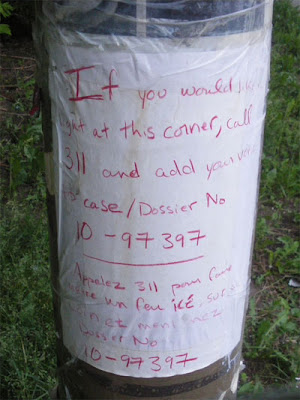 If you would
at this corner, call
311 and add your
case/Dossier No
10-97397
Appelez 311 pour faire
un feu ICÉ. sur
et
Dossier No
10-97397